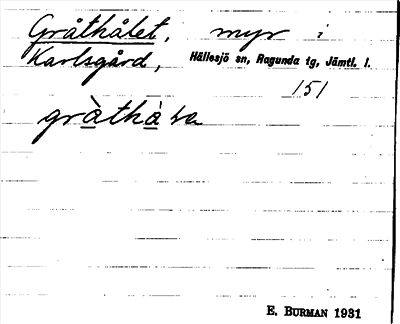 Gråthålet, myr i
Karlsgård, Hällesjö sn, Ragunda tg, Jämtl. l.
151
gràthàɫa
E. BURMAN 1931